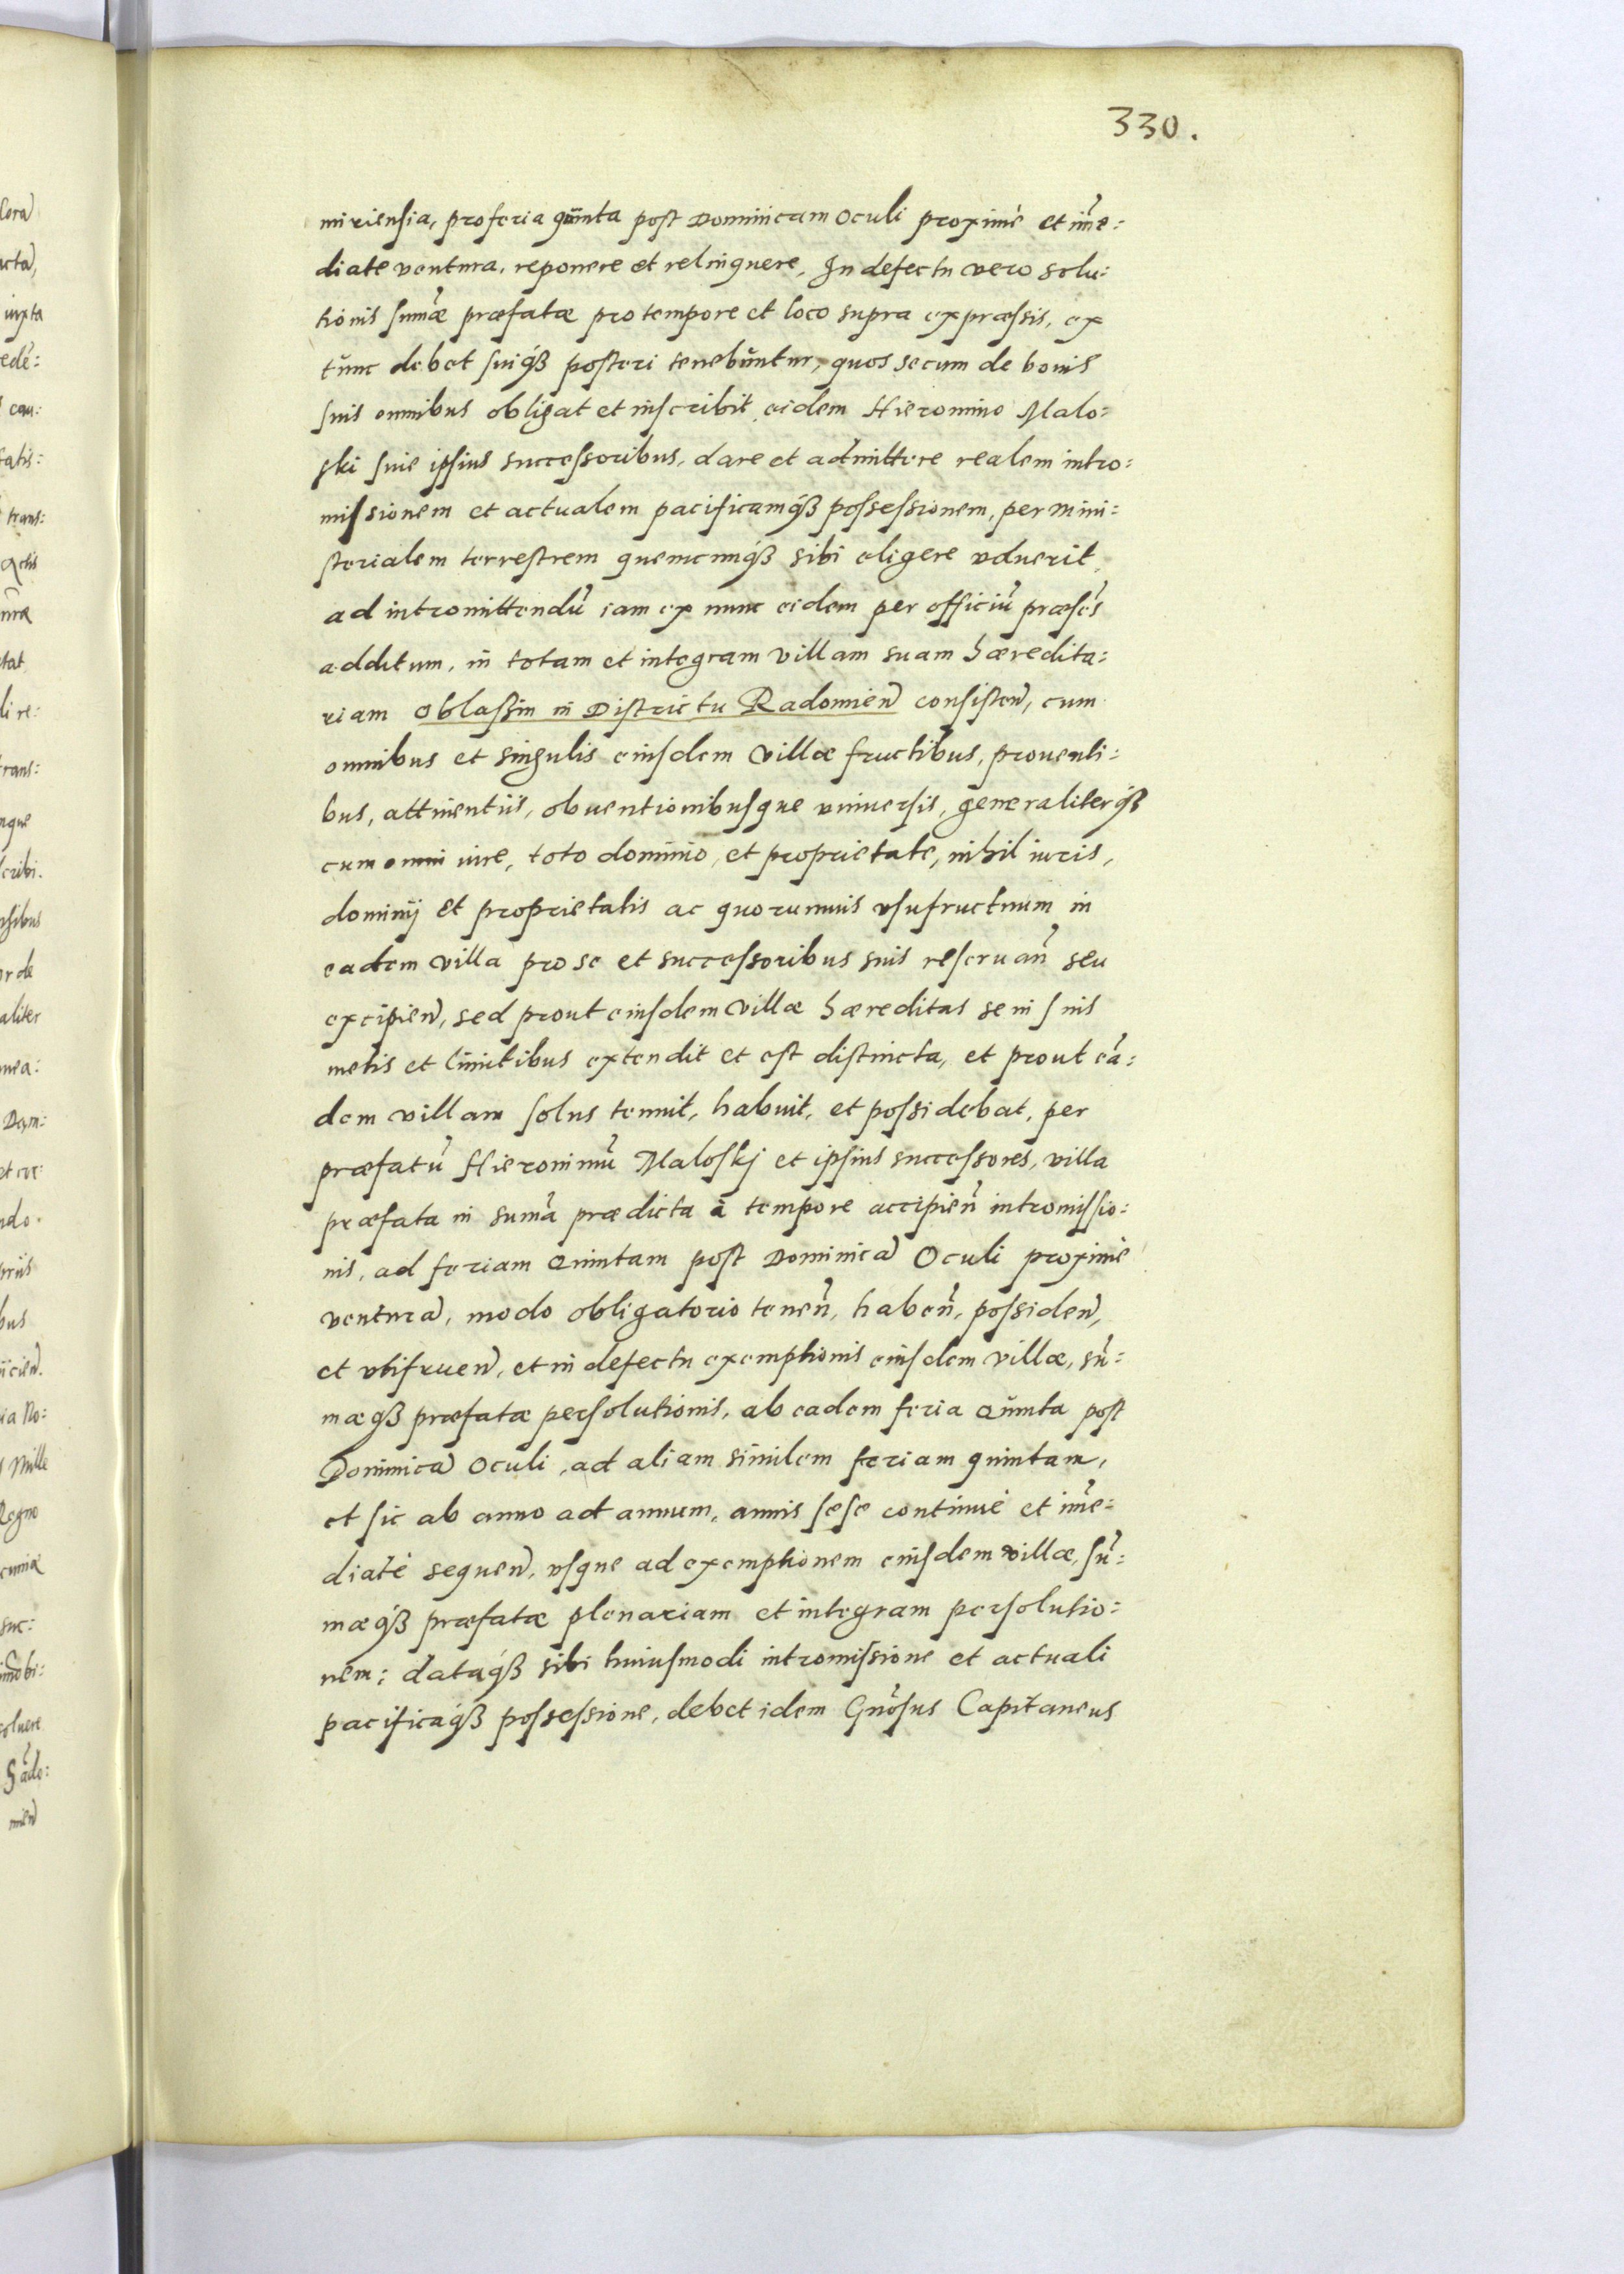 330.
miriensia, pro feria quinta post Dominicam Oculi proximè et im̃e:
diate ventura, reponere et relinquere, In defectu vero solu:
tionis sum̃æ præfatæ pro tempore et loco supra expræssis, ex
tunc debet suiq́ꝫ posteri tenebuntur, quos secum de bonis
suis omnibus obligat et inscribit eidem Hieronimo Malo:
ski suis ipsius successoribus, dare et admittere realem intro:
missionem et actualem pacificamq́ꝫ possessionem, per mini:
sterialem terrestrem quemcunq́ꝫ sibi eligere voluerit
ad intromittendũ iam ex nunc eidem per officiũ præseñs
additum, in totam et integram villam suam hæredita:
riam Oblassin in Districtu Radomieñ consisteñ, cum
omnibus et singulis eiusdem villæ fructibus, prouenti:
bus, attinentiis, obuentionibusque vniuersis, generaliterq́ꝫ
cum omni iure, toto dominio, et proprietate, nihil iuris,
dominij et proprietatis ac quorumuis vsufructuum in
eadem villa pro se et successoribus suis reseruañ seu
excipieñ, sed prout eiusdem villæ hæreditas se in suis
metis et limitibus extendit et est distincta, et prout eã:
dem villam solus tenuit, habuit, et possidebat, per
præfatũ Hieronimũ Maloskj et ipsius successores, villa
præfata in sum̃a prædicta à tempore accipieñ intromissio:
nis, ad feriam Quintam post Dominicã Oculi proximè
venturã, modo obligatorio teneñ, habeñ, possideñ,
et vtifrueñ, et in defectu exemptionis eiusdem villæ, sũ:
mæq́ꝫ præfatæ persolutionis, ab eadem feria Quinta post
Dominicã Oculi, ad aliam similem feriam quintam,
et sic ab anno ad annum, annis sese continuè et im̃e:
diatè sequeñ, vsque ad exemptionem eiusdem villæ, sũ:
mæq́ꝫ præfatæ plenariam et integram persolutio:
nem: dataq́ꝫ sibi huiusmodi intromissione et actuali
pacificaq́ꝫ possessione, debet idem Gñosus Capitaneus